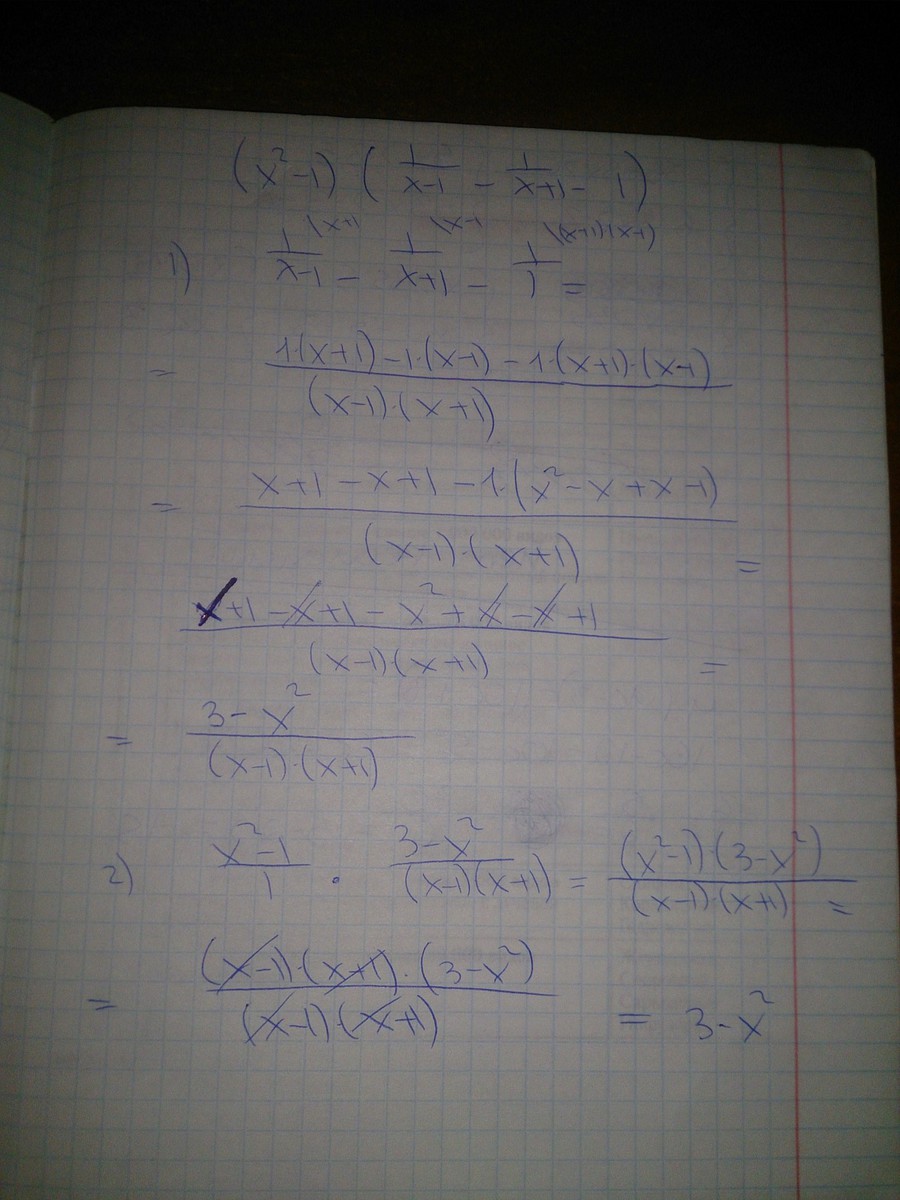 (x²-1) ( 1/(x-1) - 1/(x+1) - 1)
1) 1/(x-1) \(x+1 - 1/(x+1) \(x-1 - 1/1 \(x+1)(x-1) =
= (1·(x+1)-1·(x-1)-1·(x+1)·(x-1))/((x-1)·(x+1))
= (x+1-x+1-1·(x²-x+x-1))/((x-1)·(x+1)) =
(x+1-x+1-x²+x-x+1)/((x-1)(x+1)) =
= (3-x²)/((x-1)·(x+1))
2) (x²-1)/1 · (3-x²)/((x-1)(x+1)) = ((x²-1)·(3-x²))/((x-1)·(x+1)) =
= ((x-1)·(x+1)·(3-x²))/((x-1)·(x+1)) = 3-x²